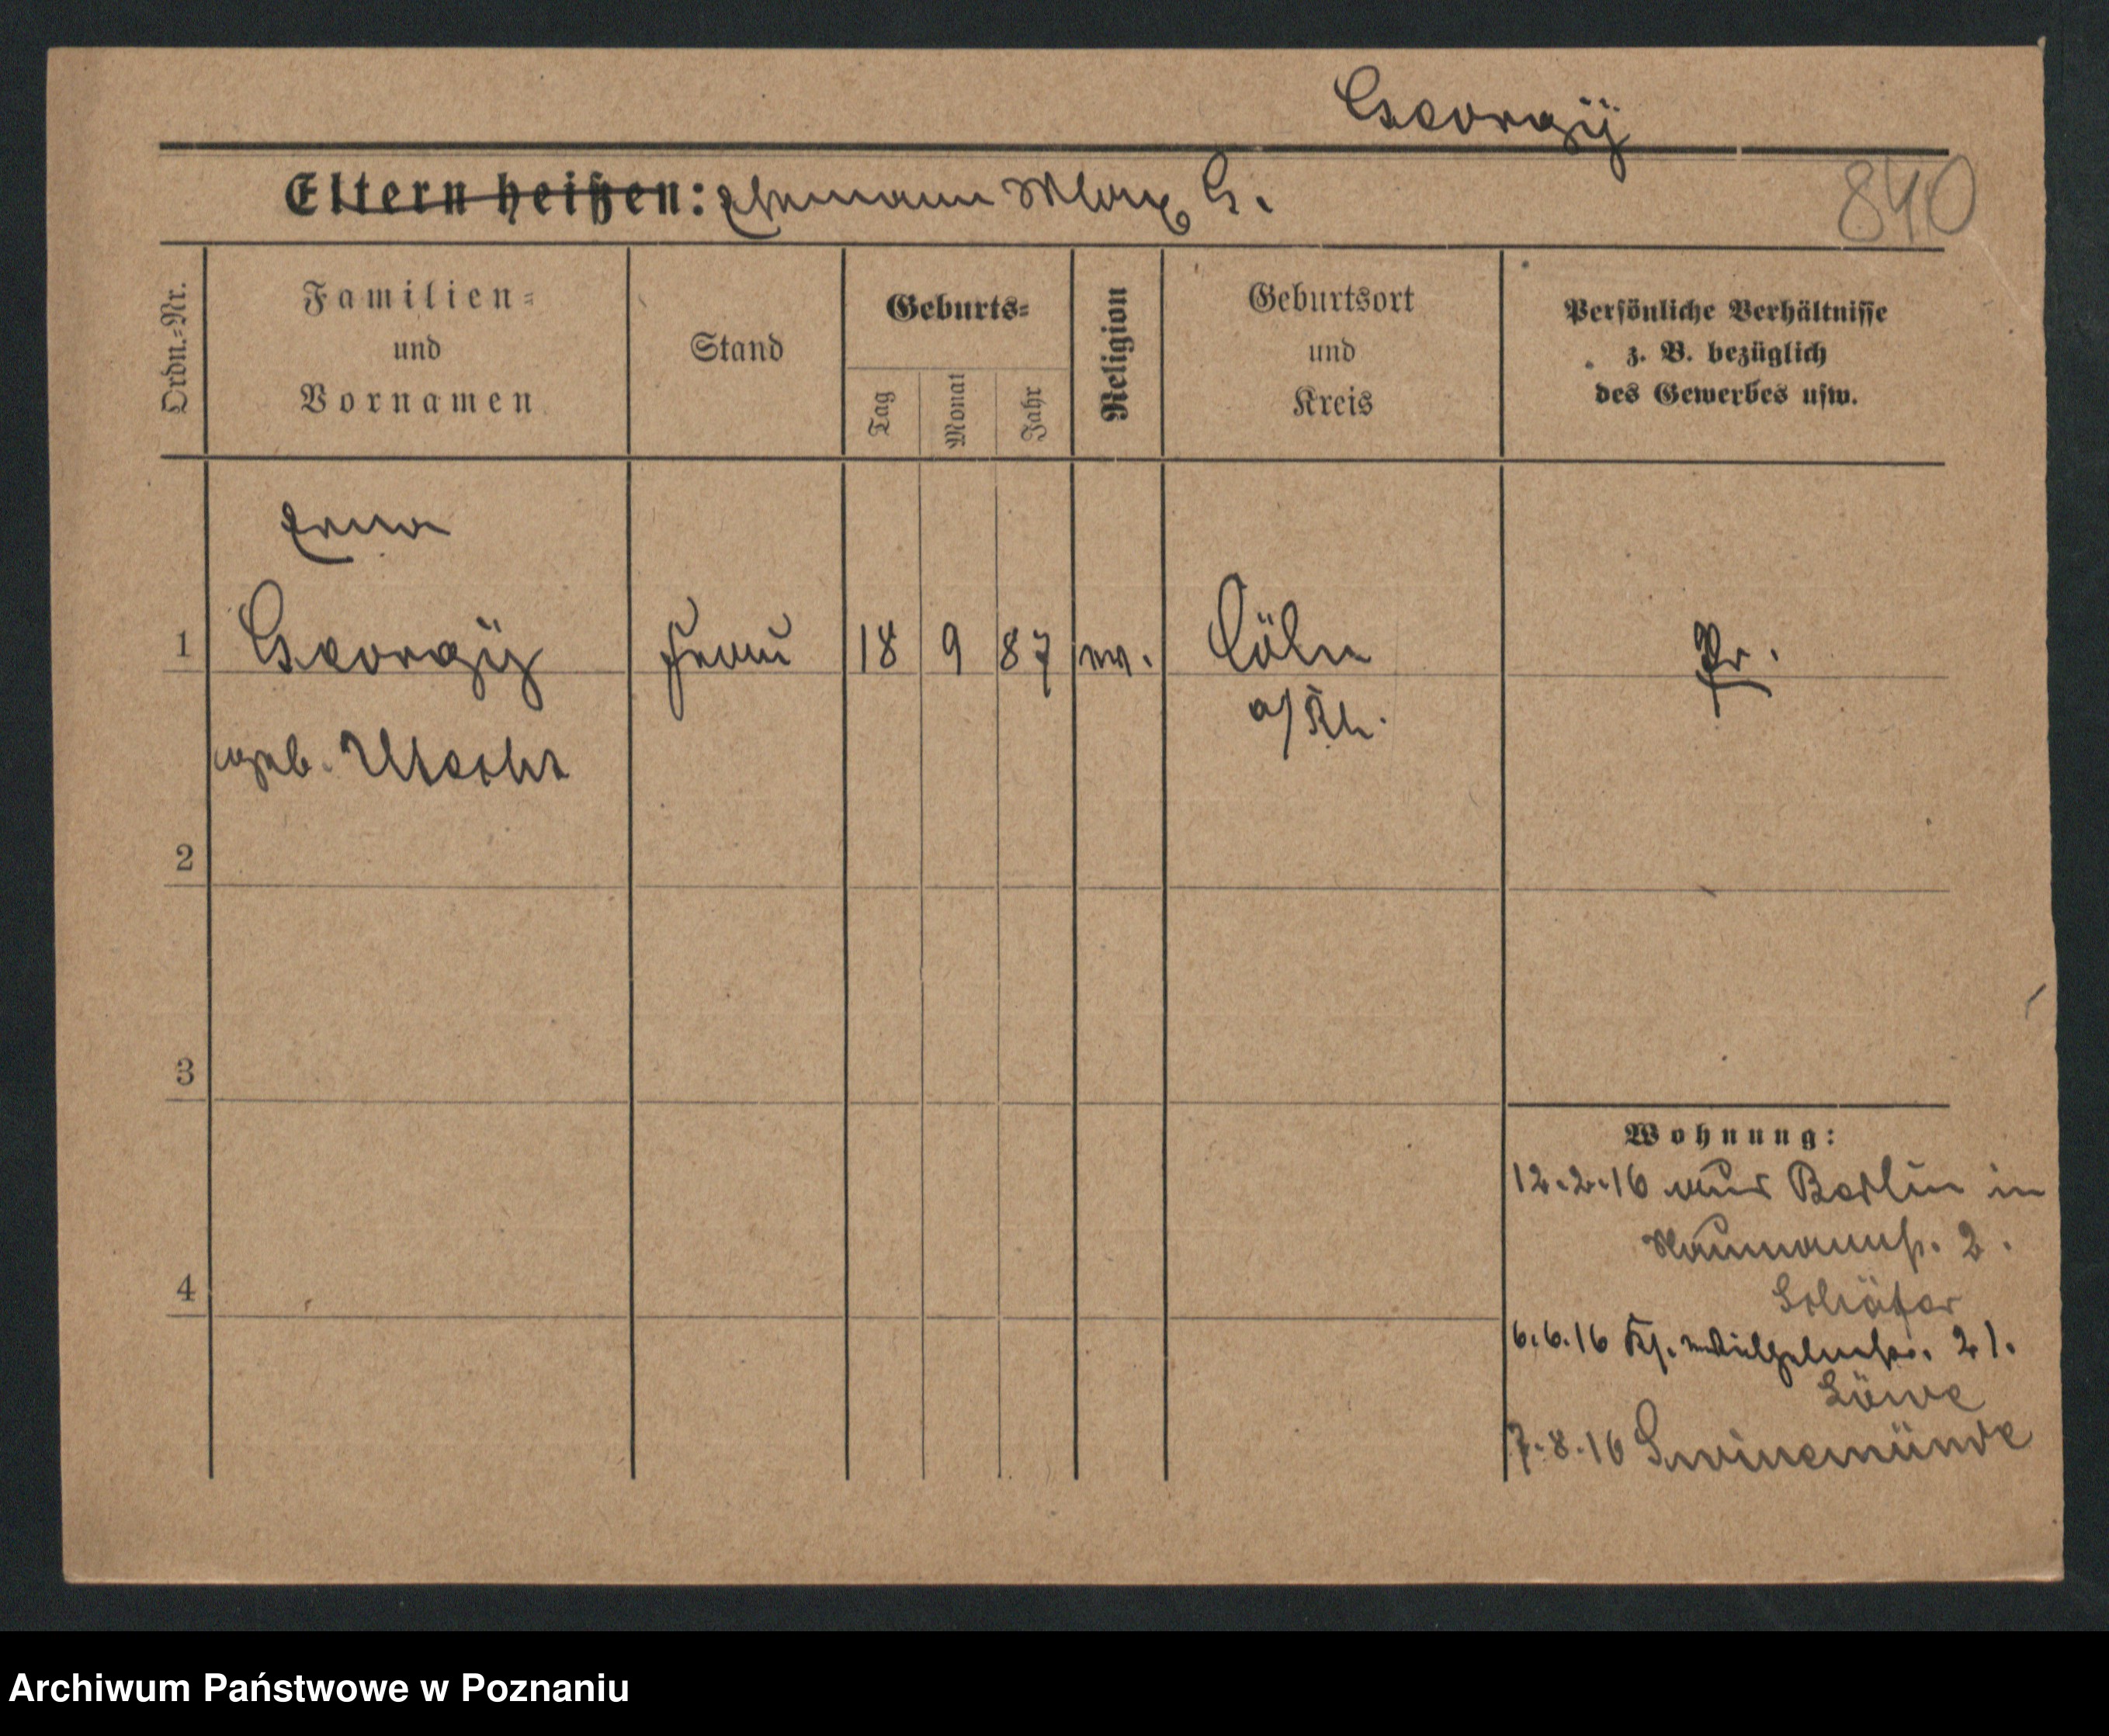 Georgÿ
Eltern heißen: Ehemann Max G.
840
Ordn.-Nr.
Familien-
und
Vornamen
Stand
Geburts-
Tag
Monat
Jahr
Religion
Geburtsort
und
Kreis
Persönliche Verhältnisse
z. B. bezüglich
des Gewerbes usw.
Erna
1 Georgÿ Frau 18 9 87 ev. Cöln Pr.
a/Rh.
geb. Utecht
2
3
4
Wohnung:
12.2.16 aus Berlin in
Naumannstr. 2.
Schäfer
6.6.16 Wilhelmstr. 21.
Löwe
7.8.16 Swinemünde
Archiwum Państwowe w Poznaniu